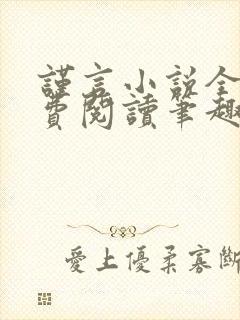 謹言小說全
費閱讀筆趣
愛上優柔寡斷